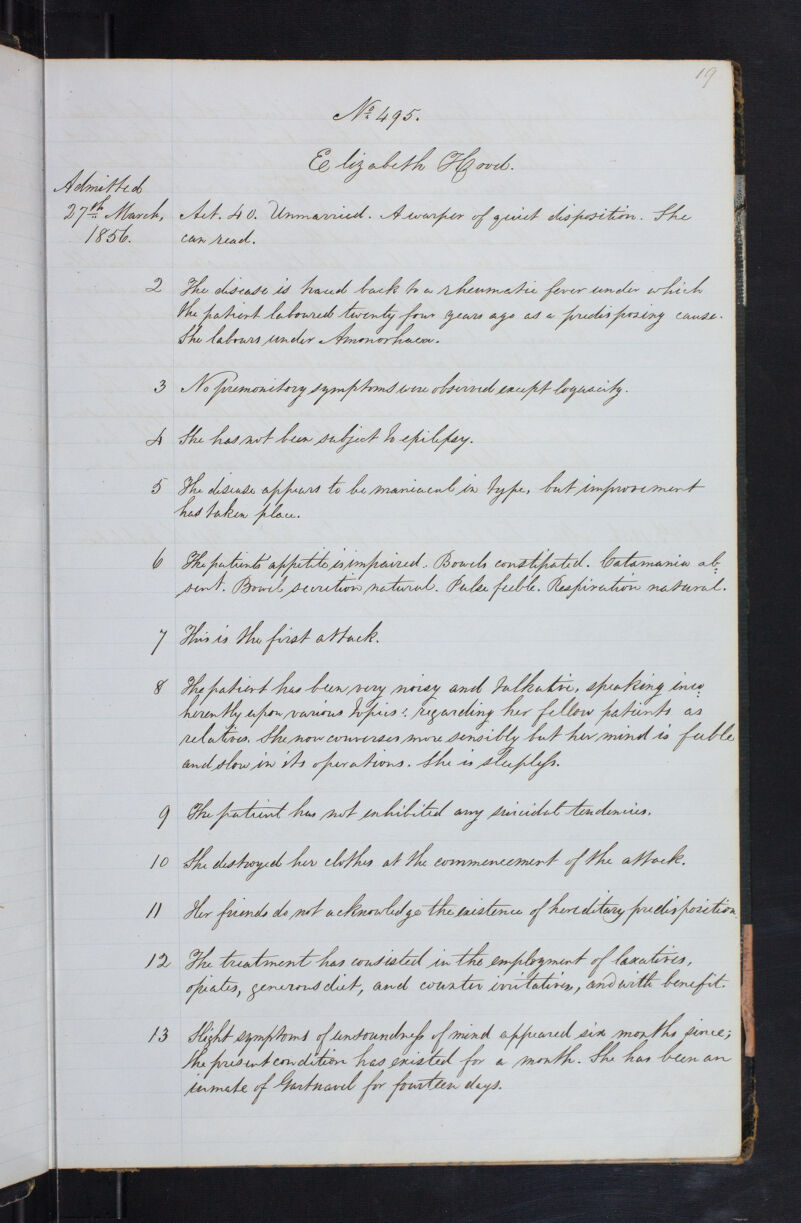 19
No 495.
Elizabeth Hood.
Admitted
27th March,
1856.
Aet. 40. Unmarried. A warper of quiet disposition. She
can read.
2 The disease is traced back to a rheumatic fever under which
the patient laboured twenty four years ago as a predisposing cause.
She labours under Amonorhaea.
3 No premonitory symptoms were observed except loquacity.
4 She has not been subject to epilepsy.
5 The disease appears to be maniacal in type, but improvement
has taken place.
6 The patients appetite is impaired. Bowels constipated. Catamania ab:
sent. Bowel secretion natural. Pulse feeble. Respiration natural.
7 This is the first attack.
8 The patient has been very noisy and talkative, speaking inco:
herently upon various topics: regarding her fellow patients as
relatives. She now converses more sensibly but her mind is feeble
and slow in its operations. She is sleepless.
9 The patient has not exhibited any suicidal tendencies.
10 She destroyed her clothes at the commencement of the attack.
11 Her friends do not acknowledge the existence of hereditary predisposition
12 The treatment has consisted in the employment of laxatives,
opiates, generous diet, and counter irritatives, and with benefit.
13 Slight symptoms of unsoundness of mind appeared six months since;
the present condition has existed for a month. She has been an
inmate of Gartnavel for fourteen days.